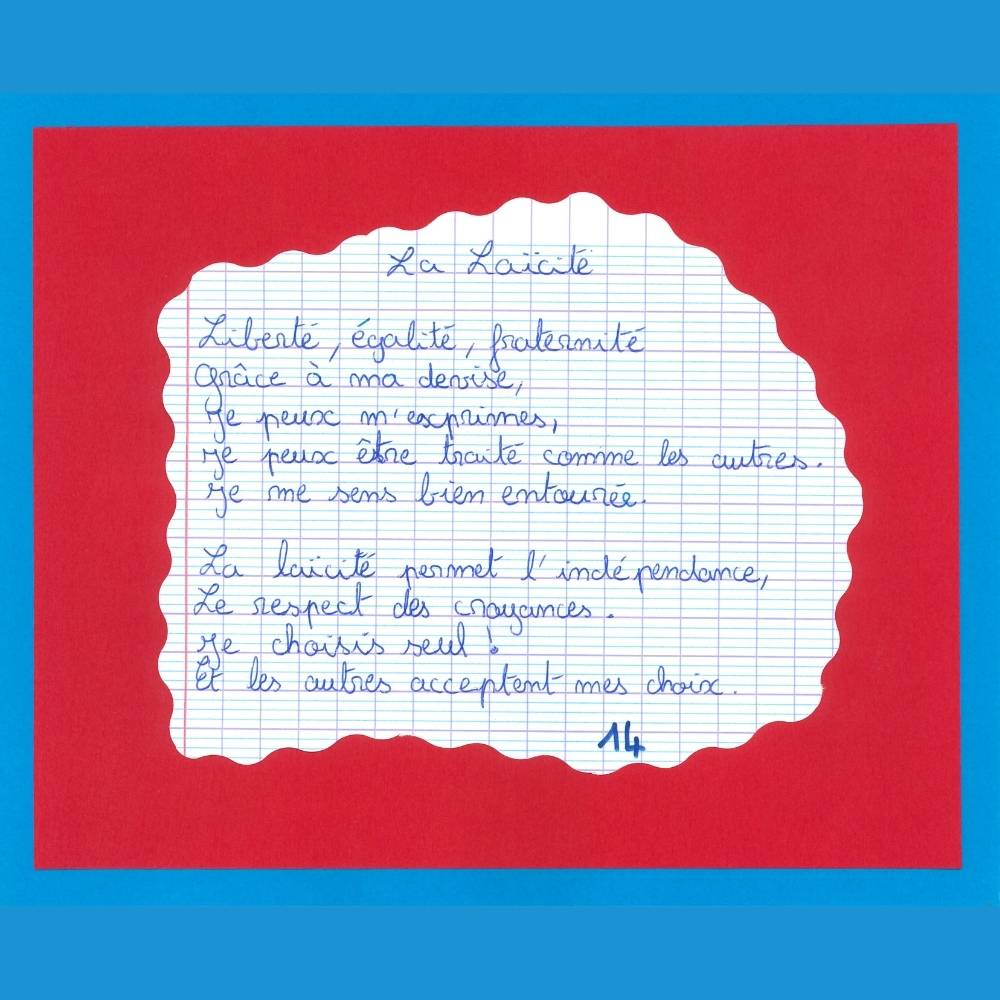 La Laïcité
Liberté, égalité, fraternité
Grâce à ma devise,
Je peux m'exprimes,
Je peux être traité comme les autres.
Je me sens bien entourée.
La laïcité permet l'indépendance,
Le respect des croyances.
Je choisis seul !
Et les autres acceptent mes choix.
14